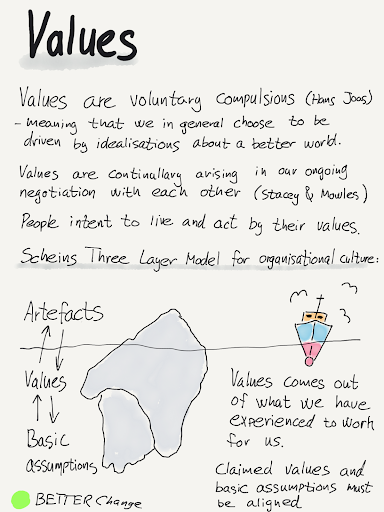 Values
Values are voluntary compulsions (Hans Joas)
- Meaning that we in general choose to be
driven by idealisations about a better world.
Values are continuallary arising in our ongoing
negotiation with each other (Stacey & Mowles)
People intent to live and act by their values.
Scheins Three Layer Model for organisational culture:
Artefacts
Values
Basic
assumptions
Values comes out
of what we have
experienced to work
for us.
Claimed values and
basic assumptions must
be aligned
BETTER Change